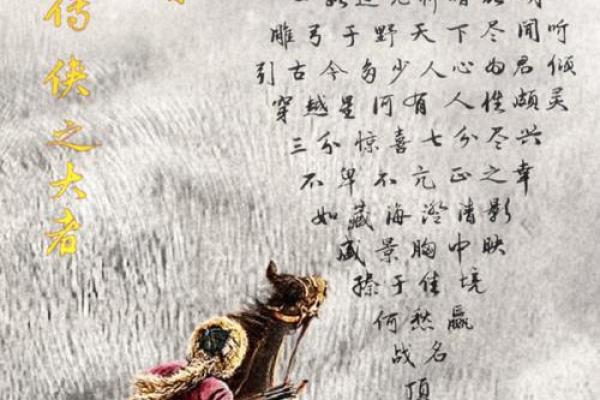 传侠之大者
雕弓于野天下尽闻听
引古今多少人心为君倾
穿越星河有人性颇灵
三分惊喜七分尽兴
不卑不亢正之幸
如藏海澄清影
盛景胸中映
臻于佳境
何愁赢
战名
顶